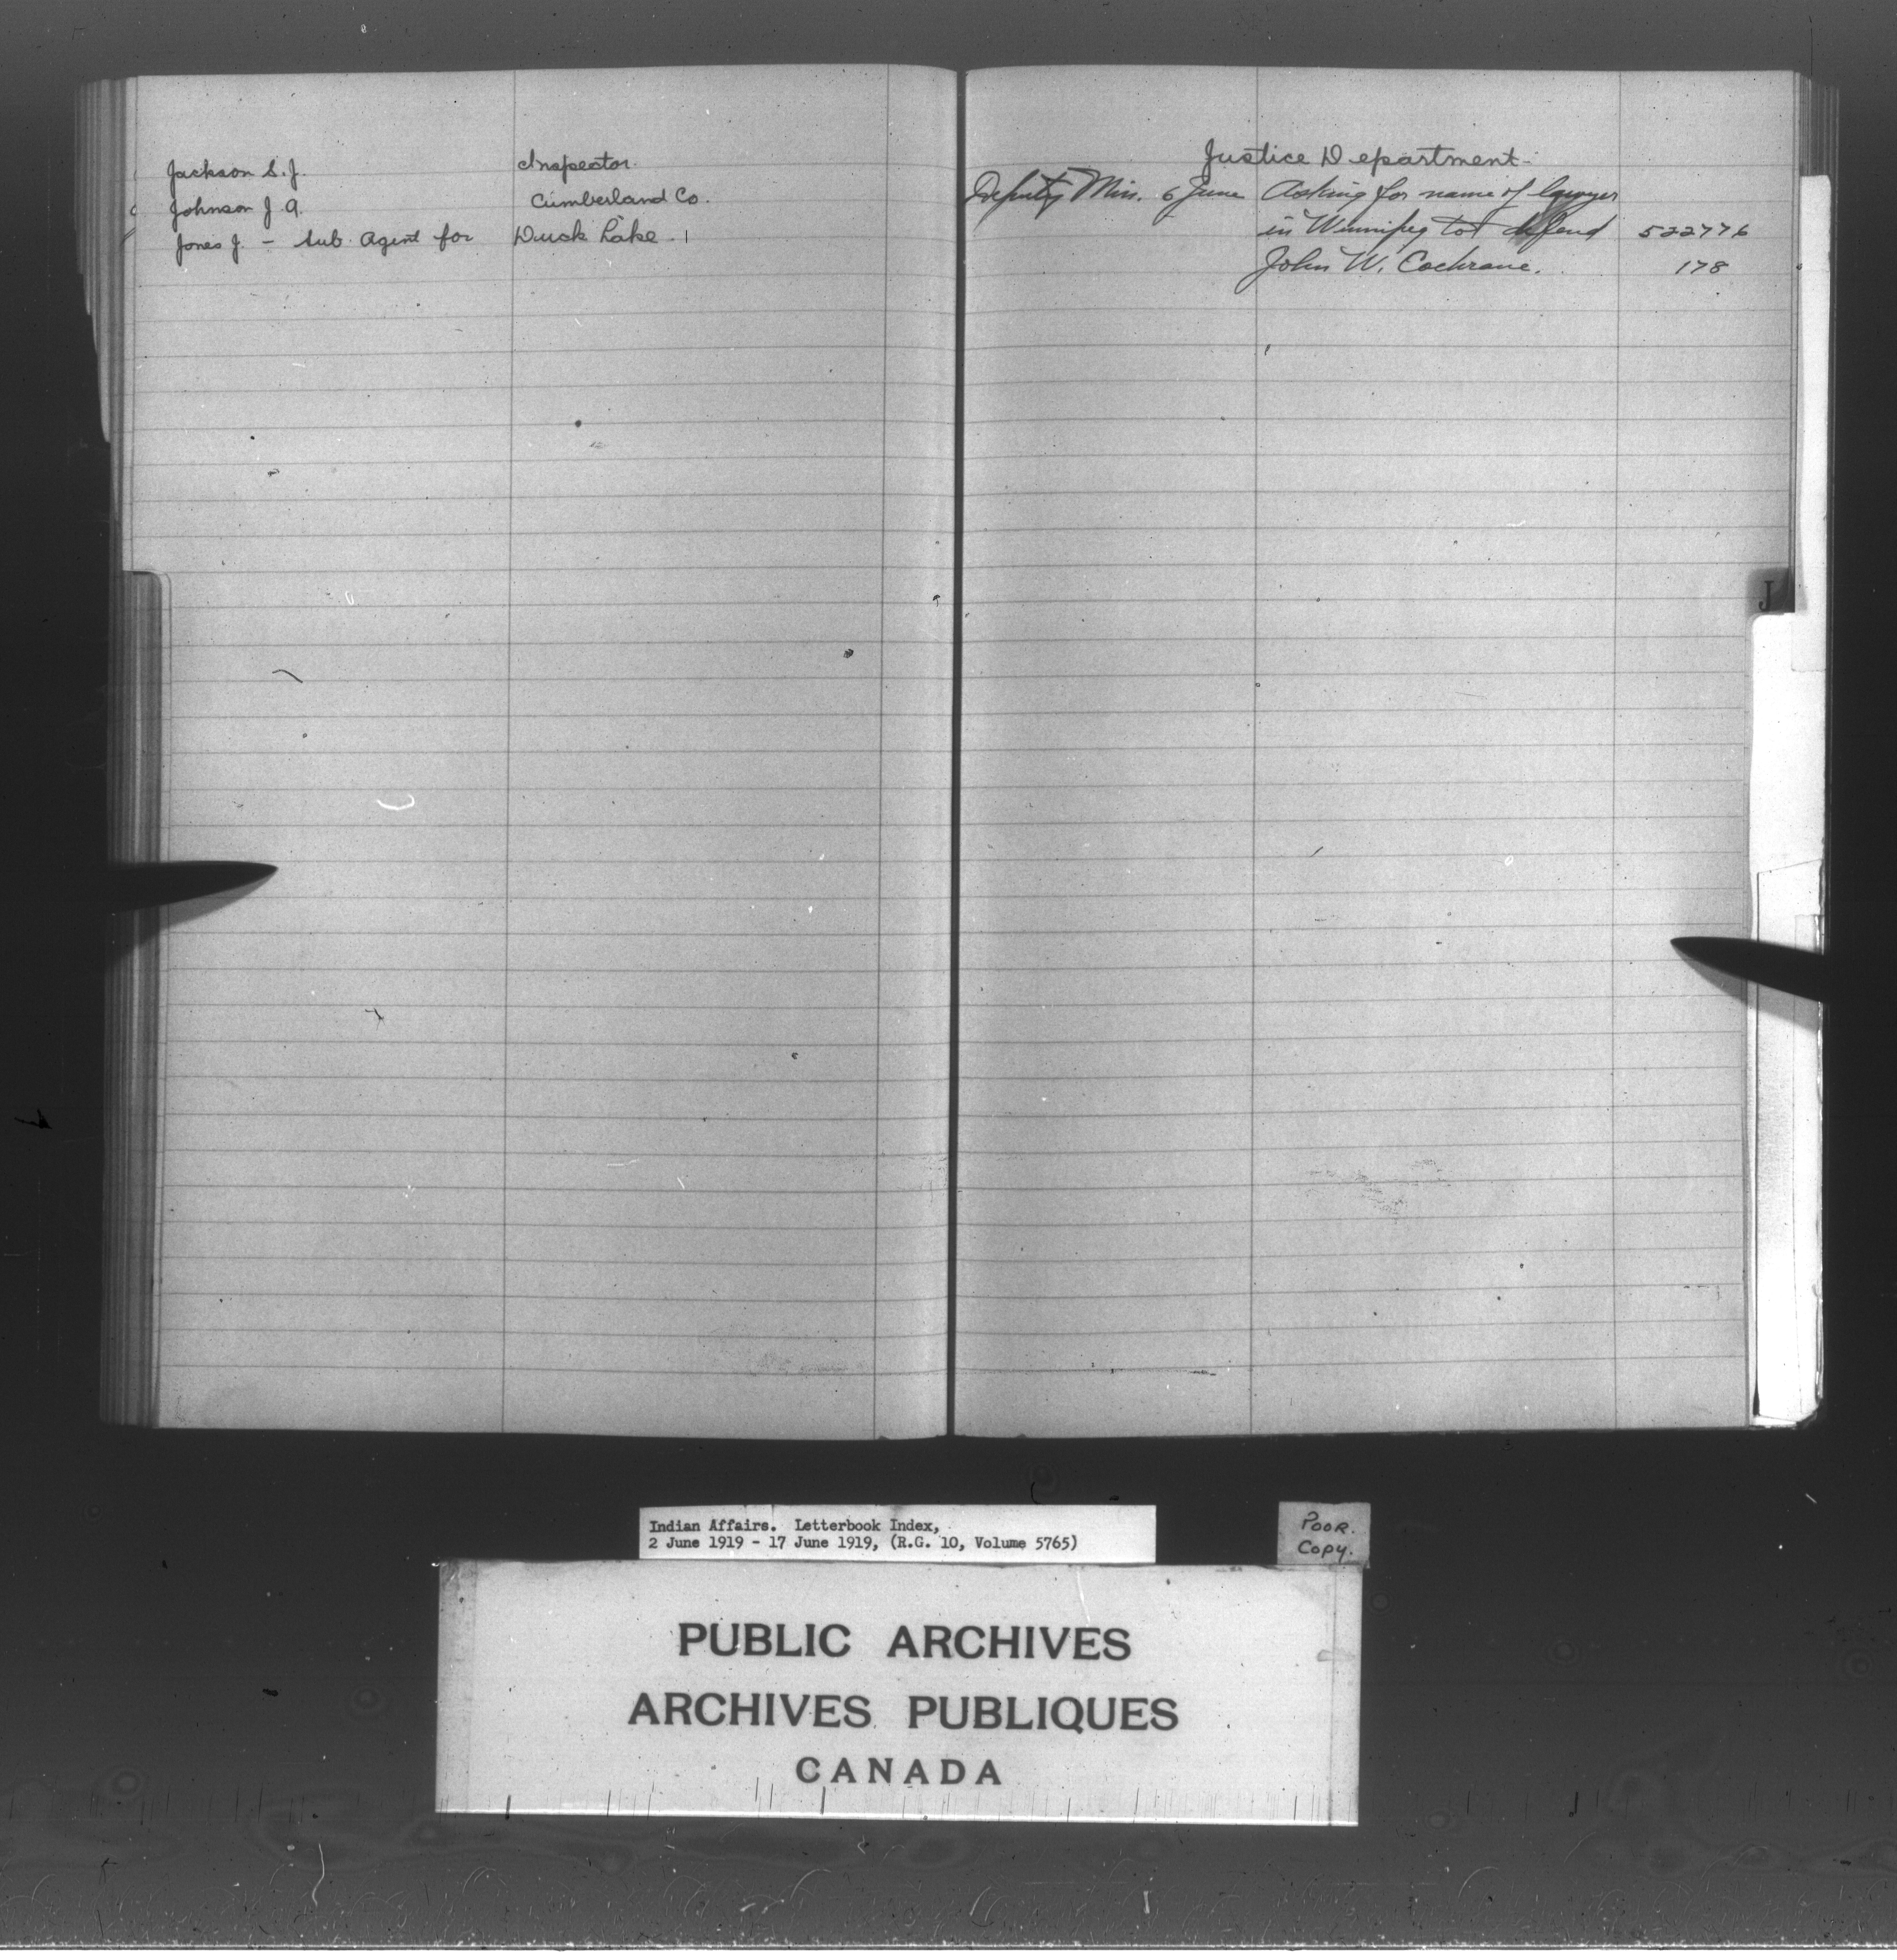 Jackson S. J. Inspector.
Johnson J. A. Cumberland Co.
Jones J. - Sub. Agent for Duck Lake.
Justice Department -
Deputy Min. 6 June Asking for name of lawyer
in Winnipeg to defend 522776
John W. Cochrane. 178
J
Indian Affairs. Letterbook Index,
2 June 1919 - 17 June 1919, (R.G. 10, Volume 5765)
POOR.
Copy.
PUBLIC ARCHIVES
ARCHIVES PUBLIQUES
CANADA